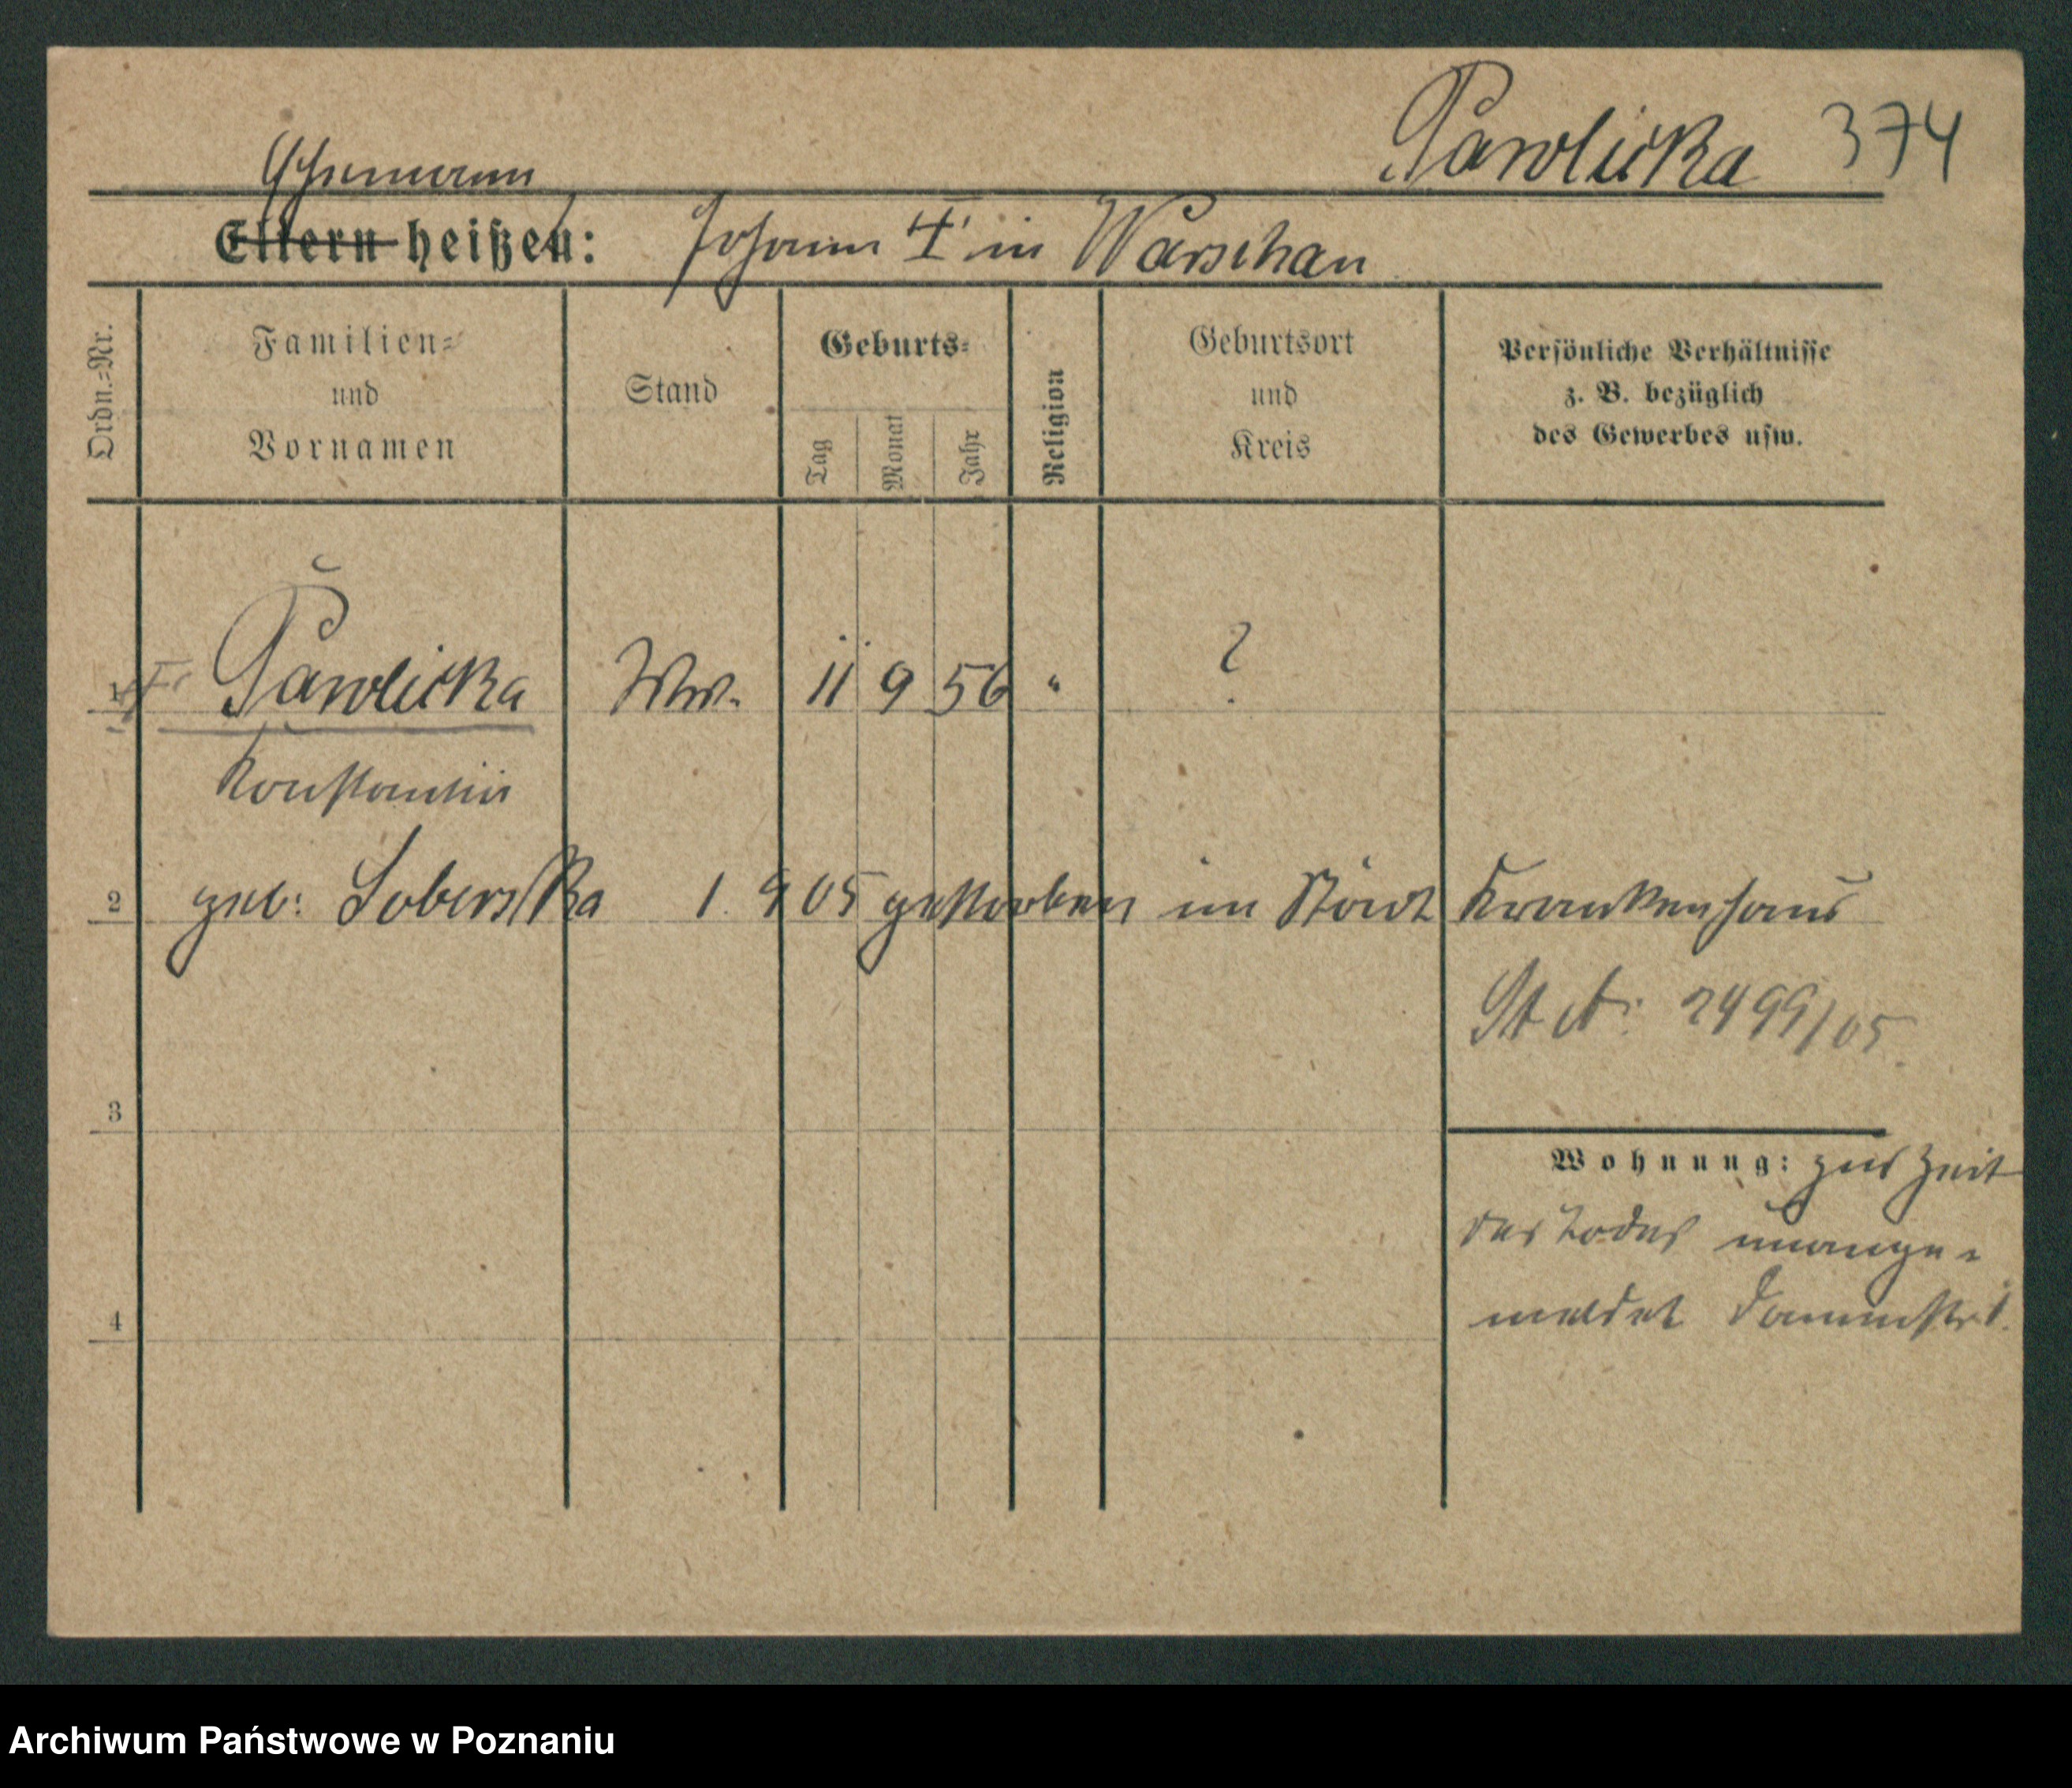 Pawlicka 374
Ehemann
Eltern heißen: Johann † in Warschau
Ordn.-Nr.
Familien-
und
Vornamen
Stand
Geburts-
Tag
Monat
Jahr
Religion
Geburtsort
und
Kreis
Persönliche Verhältnisse
z. B. bezüglich
des Gewerbes usw.
1 Pawlicka Ww. 11 9 56 " ?
Konstantin
2 geb: Soberska 1. 9 05 gestorben im Städt Krankenhaus
St A: 2499/05.
3
Wohnung: zur Zeit
des Todes unange-
meldet
4
Archiwum Państwowe w Poznaniu